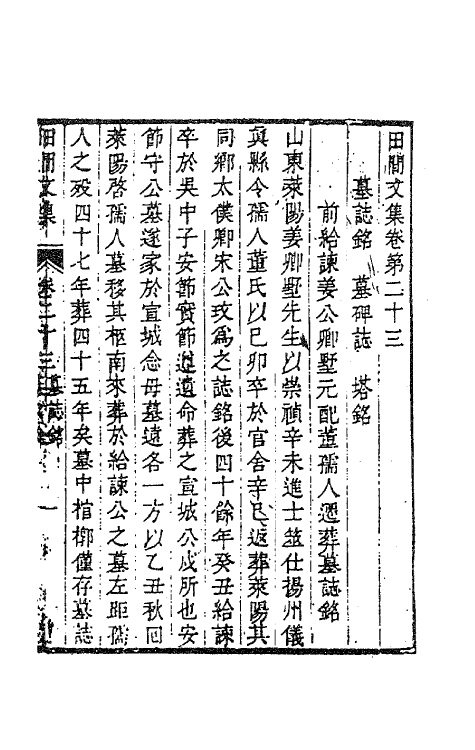 田間文集卷第二十三
墓誌銘 墓碑誌 塔銘
前給諫姜公卿墅元配董孺人遷葬墓誌銘
山東萊陽姜卿墅先生以崇禎辛未進士筮仕揚州儀
眞縣令孺人董氏以己卯卒於官舍辛巳返葬萊陽其
同鄉太僕卿宋公玫為之誌銘後四十餘年癸丑給諫
卒於吳中子安節實節遵遺命葬之宣城公戍所也安
節守公墓遂家於宣城念母墓遠各一方以乙丑秋囘
萊陽啓孺人墓移其柩南來葬於給諫公之墓左距孺
人之歿四十七年葬四十五年矣墓中棺槨僅存墓誌
田間文集 卷二十三 墓誌銘 一